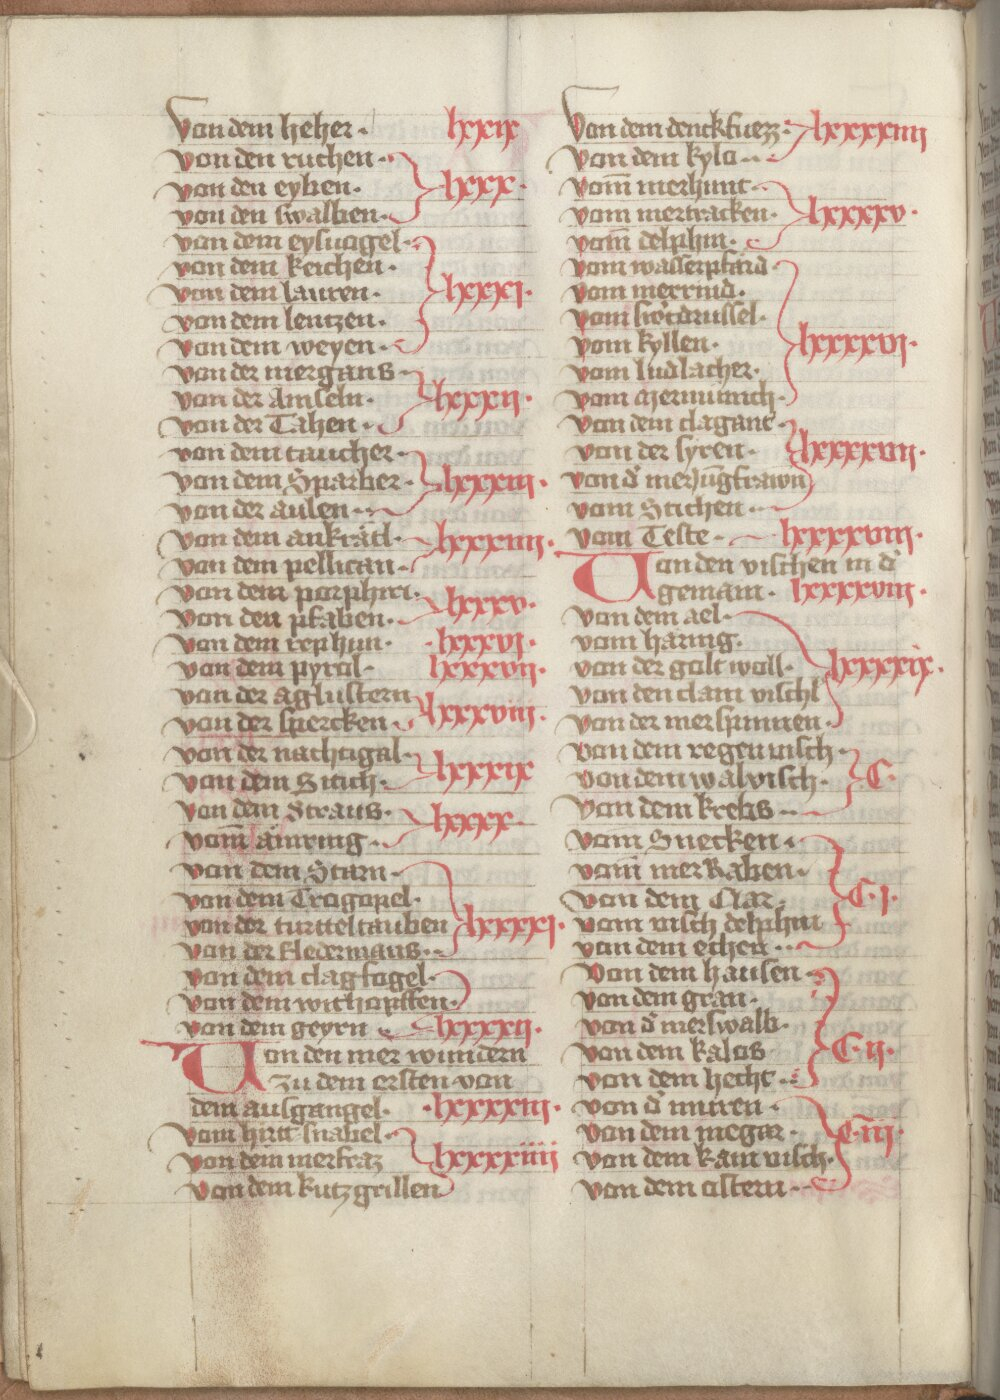 Von dem heher · lxxix
von den ruchen ·
von den eyben · lxxx ·
von den swalben ·
von dem eysuogel ·
von dem keichen ·
von dem lauren · lxxxi ·
von dem lentzen ·
von dem weyen ·
von der mergans ·
von der Amseln · lxxxii ·
von der Tahen ·
von dem taucher ·
von dem Sparber · lxxxiii ·
von der aulen ·
von dem ankrätl · lxxxiiii ·
von dem pellican ·
von dem porphiri · lxxxv ·
von den pfaben ·
von dem rephun · lxxxvi ·
von dem pyrol · lxxxvii
von der aglustern lxxxviii ·
von der spercken ·
von der nachtigal · lxxxix
von dem Sitich ·
von dem Straus · lxxxx ·
vom̄ ämring ·
von dem Starn ·
von dem Trogopel ·
von der turtteltauben lxxxxi ·
von der fledermaus ·
von dem clagfogel ·
von dem withopffen ·
von dem geyrn lxxxxii ·
Von den mer wundern
Zu dem ersten von
dem ausgangel · lxxxxiii ·
vom hirtt snabel ·
von dem merfraz lxxxxiiii
von dem kutz grillen
Von dem denckfuezz · lxxxxiiii
von dem kylo ·
vom̄ merhunt ·
vom mertracken · lxxxxv ·
vom̄ delphin ·
vom wasserpfärd ·
vom merrind ·
vom swtdrussel ·
vom kyllen · lxxxxvi ·
vom ludlacher ·
vom Mermünich ·
von dem clagant ·
von der syren · lxxxxvii ·
von d' merjūgfrawn
vom Stichen ·
vom Teste · lxxxxviii ·
Von den vischen in d'
gemain · lxxxxviii ·
von dem ael ·
vom häring ·
von der golt woll · lxxxxix ·
von den clain vischl
von der merspinnen ·
von dem regenuisch ·
von dem walvisch · C ·
von dem krebs ·
vom̄ Snecken ·
vom̄ merRaben ·
von dem Clar · C · i ·
vom visch delphin
von dem echen ·
von dem hausen ·
von dem gran ·
von d' merswalb ·
von dem kalos C · ii ·
von dem hecht ·
von d' muren ·
von dem megar · C · iii ·
von dem kam visch ·
von dem ostern ·